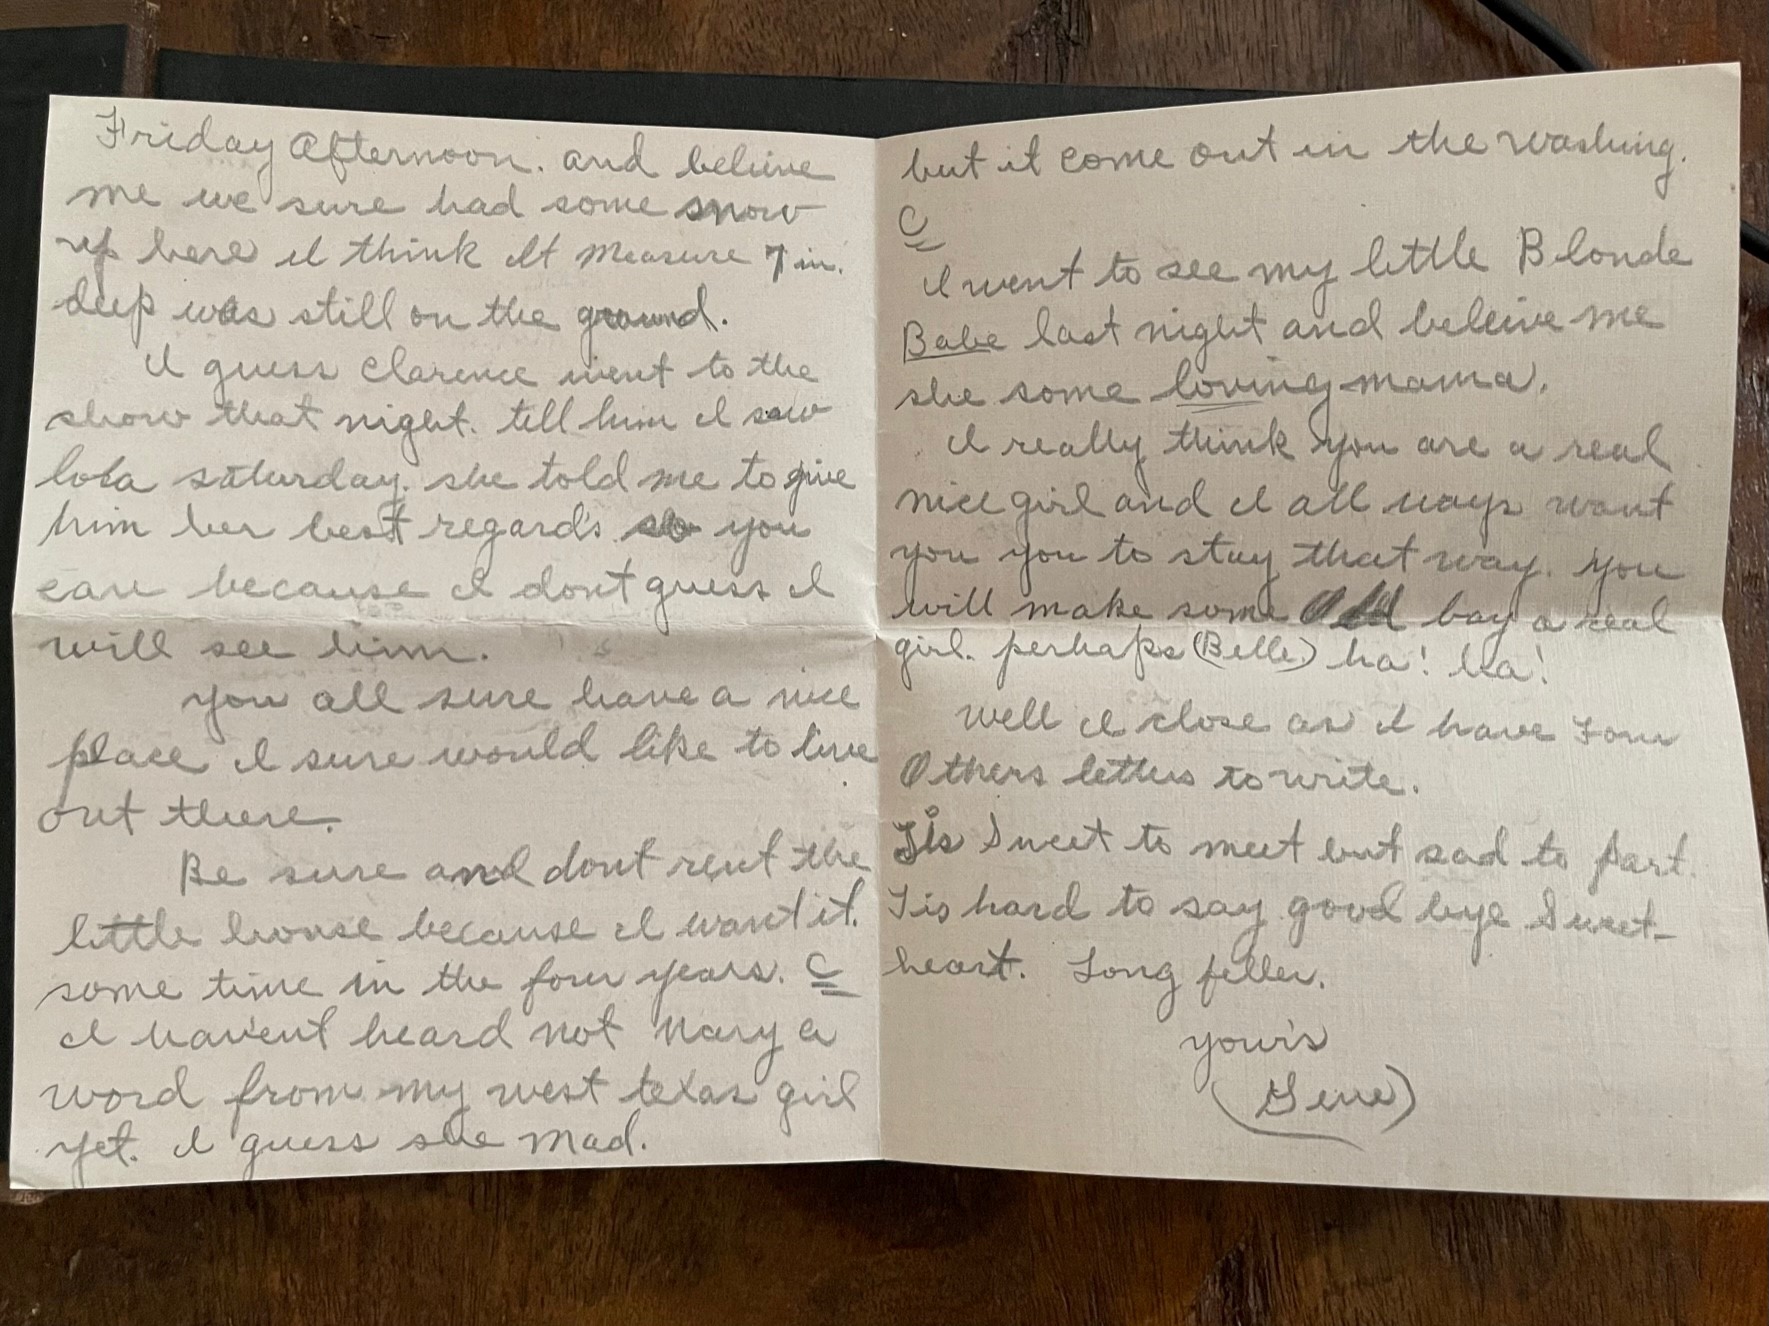 Friday Afternoon. and beleive
me we sure had some snow
up here I think It measure 7 in.
deep was still on the ground.
I guess Clarence went to the
show that night. tell him I saw
lola saturday. she told me to give
him her best regard's so you
can because I dont guess I
will see him.
you all sure have a nice
place I sure would like to live
out there.
Be sure and dont rent the
little house because I want it.
some time in the four years. C
I haven't heard not nary a
word from my west texas girl
yet. I guess she mad.
but it come out in the washing.
C
I went to see my little Blonde
Babe last night and beleive me
she some loving mama.
I really think you are a real
nice girl and I all ways want
you you to stay that way. you
will make some old boy a real
girl. perhaps (Belle) ha! ha!
Well I close as I have Four
Others letters to write.
Tis Sweet to meet but sad to part.
Tis hard to say good bye Sweet-
heart. Long feller.
your's
(Gene)